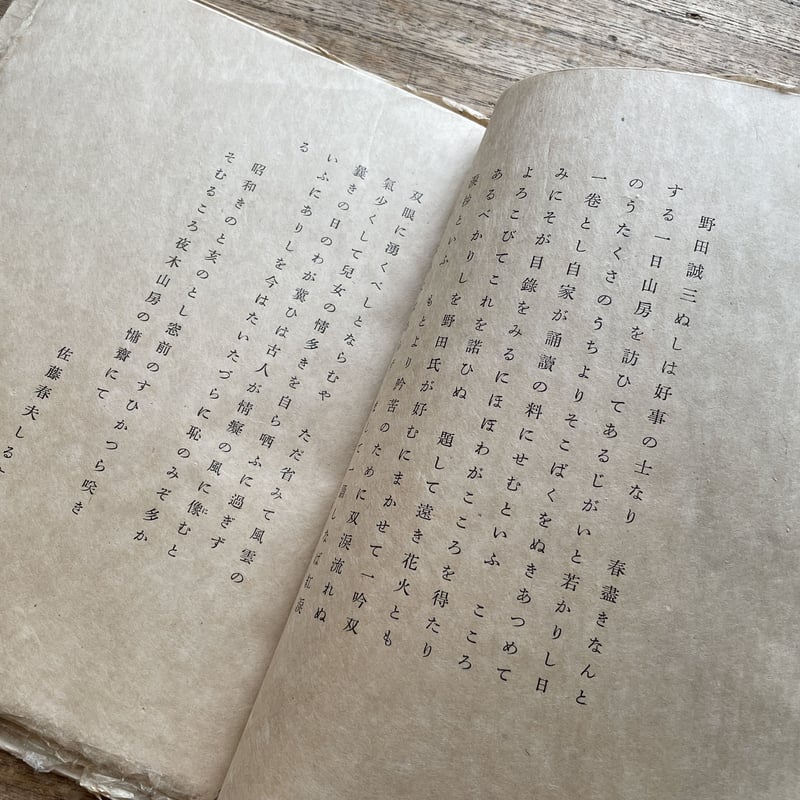 野田誠三ぬしは好事の士なり　春盡きなんと
する一日山房を訪ひてあるじがいと若かりし日
のうたくさのうちよりそこばくをぬきあつめて
一卷とし自家が誦讀の料にせむといふ　こころ
みにそが目錄をみるにほぼわがこころを得たり
よろこびてこれを諾ひぬ　題して遠き花火とも
あるべかりしを野田氏が好むにまかせて一吟双
淚抄といふ　もとより吟苦のために双淚流れぬ
して一誦しなば紅淚
双眼に湧くべしとならむや　ただ省みて風雲の
氣少くして兒女の情多きを自ら哂ふに過ぎず
曩きの日のわが冀ひは古人が情癡の風に像むと
いふにありしを今はたいたづらに恥のみぞ多か
る
昭和きのと亥のとし窓前のすひかつら咲き
そむるころ夜木山房の慵齋にて
佐藤春夫しる